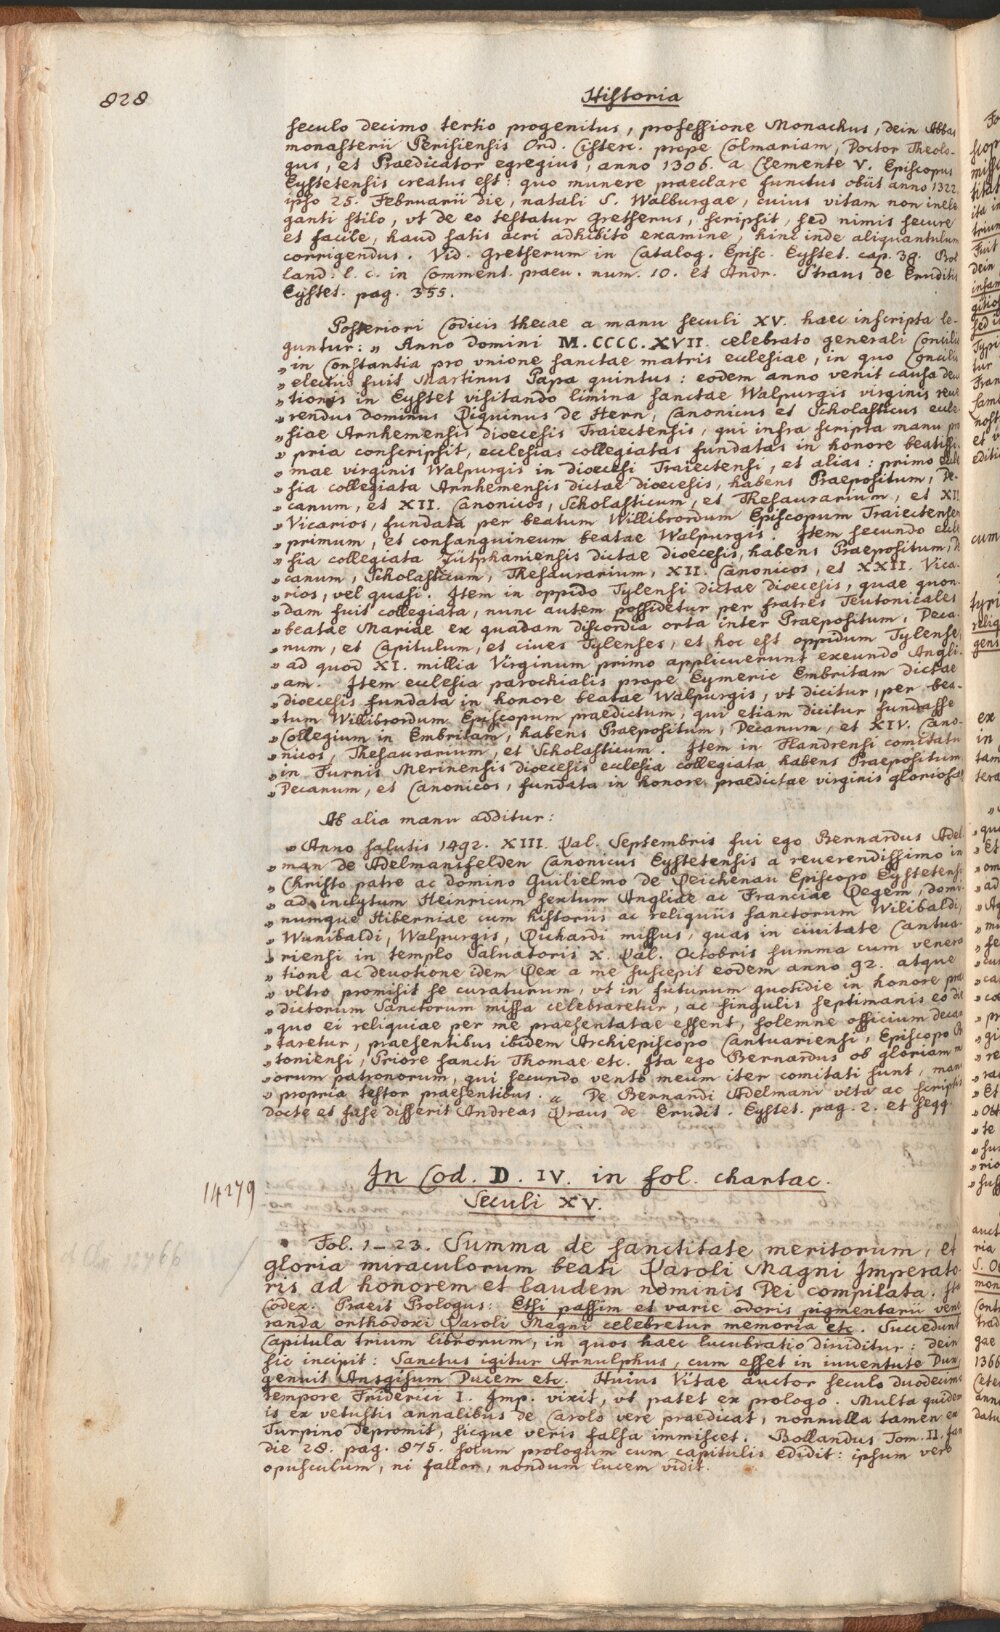 828
Historia
seculo decimo tertio progenitus, professione Monachus, dein Abbas
monasterii Perisiensis Ord. Cisterc. prope Colmariam, Doctor Theolo-
gus, et Praedicator egregius, anno 1306. a Clemente V. Episcopus
Eystetensis creatus est: quo munere praeclare functus obiit anno 1322
ipso 25. Februarii die, natali S. Walburgae, cuius vitam non inele
ganti stilo, vt de eo testatur Gretserus, scripsit, sed nimis secure
et facile, haud satis acri adhibito examine, hinc inde aliquantulum
corrigendus. Vid. Gretserum in Catalog. Episc. Eystet. cap. 39. Bol
land. l. c. in Comment. praev. num. 10. et Andr. Straus de Eruditis
Eystet. pag. 355.
Posteriori Codicis thecae a manu seculi XV. haec inscripta le-
guntur: „ Anno Domini M.CCCC.XVII. celebrato generali Concilio
„ in Constantia pro vnione sanctae matris ecclesiae, in quo Concilio
„ electus fuit Martinus Papa quintus: eodem anno venit causa devo
„ tionis in Eystet visitando limina sanctae Walpurgis virginis reve
„ rendus dominus Riquinus de Hern, Canonicus et Scholasticus eccle
„ siae Arnhemensis dioecesis Traiectensis, qui infra scripta manu pro
„ pria conscripsit, ecclesias collegiatas fundatas in honore beatissi.
„ mae virginis Walpurgis in dioecesi Traiectensi, et alias: primo eccle
„ sia collegiata Arnhemensis dictae dioecesis, habens Praepositum, De-
„ canum, et XII. Canonicos, Scholasticum, et Thesaurarium, et XII
„ Vicarios, fundata per beatum Willibrordum Episcopum Traiectensem
„ primum, et consanguineum beatae Walpurgis. Item secundo eccle
„ sia collegiata Zutphaniensis dictae dioecesis, habens Praepositum, D
„ canum, Scholasticum, Thesaurarium, XII. Canonicos, et XXII. Vica-
„ rios, vel quasi. Item in oppido Tylensi dictae dioecesis, quae quon-
„ dam fuit collegiata, nunc autem possidetur per fratres Teutonicales
„ beatae Mariae ex quadam discordia orta inter Praepositum, Deca
„ num, et Capitulum, et ciues Tylenses, et hoc est oppidum Tylense
„ ad quod XI. millia Virginum primo applicuerunt exeundo Angli-
„ am. Item ecclesia parochialis prope Eymeric Embritam dictae
„ dioecesis fundata in honore beatae Walpurgis, vt dicitur, per bea-
„ tum Willibrordum Episcopum praedictum, qui etiam dicitur fundasse
„ Collegium in Embritam, habens Praepositum, Decanum, et XIV. Cano-
„ nicos, Thesaurarium, et Scholasticum. Item in Flandrensi comitatu
„ in Furnis Merinensis dioecesis ecclesia collegiata habens Praepositum
„ Decanum, et Canonicos, fundata in honore praedictae virginis gloriosae
Ab alia manu additur:
„ Anno salutis 1492. XIII. Kal. Septembris fui ego Bernardus Adel
„ man de Adelmansfelden Canonicus Eystetensis a reuerendissimo in
„ Christo patre ac domino Guilielmo de Reichenau Episcopo Eystetens.
„ ad inclytum Heinricum sextum Angliae ac Franciae Regem, domi
„ numque Hiberniae cum historiis ac reliquiis sanctorum Wilibaldi,
„ Wunibaldi, Walpurgis, Richardi missus, quas in ciuitate Cantua-
„ riensi in templo Saluatoris X. Kal. Octobris summa cum venera
„ tione ac deuotione idem Rex a me suscepit eodem anno 92. atque
„ vltro promisit se curaturum, vt in futurum quotidie in honore prae
„ dictorum Sanctorum missa celebraretur, ac singulis septimanis eo die
„ quo ei reliquiae per me praesentatae essent, solemne officium decan
„ taretur, praesentibus ibidem Archiepiscopo Cantuariensi, Episcopo
„ toniensi, Priore sancti Thomae etc. Ita ego Bernardus ob gloriam
„ orum patronorum, qui secundo vento meum iter comitati sunt, manu
„ propria testor praesentibus. „ De Bernardi Adelmani vita ac scriptis
docte et fuse disserit Andreas Straus de Erudit. Eystet. pag. 2. et seqq.
14279
In Cod. D. IV. in fol. chartac.
Seculi XV.
Fol. 1-23. Summa de sanctitate meritorum, et
gloria miraculorum beati Karoli Magni Imperato-
ris ad honorem et laudem nominis Dei compilata. Ita
Codex. Praeit Prologus: Etsi passim et varie odoris pigmentarii vene
randa orthodoxi Karoli Magni celebretur memoria etc. Succedunt
Capitula trium librorum, in quos haec lucubratio diuiditur: dein
sic incipit: Sanctus igitur Arnulphus, cum esset in iuuentute Dux,
genuit Ansgisum Ducem etc. Huius Vitae auctor seculo duodecimo
tempore Friderici I. Imp. vixit, vt patet ex prologo. Multa quidem
is ex vetustis annalibus de Carolo vere praedicat, nonnulla tamen ex
Turpino depromit, sicque veris falsa immiscet. Bollandus Tom. II. Jan
die 28. pag. 875. solum prologum cum capitulis edidit: ipsum vero
opusculum, ni fallor, nondum lucem vidit.